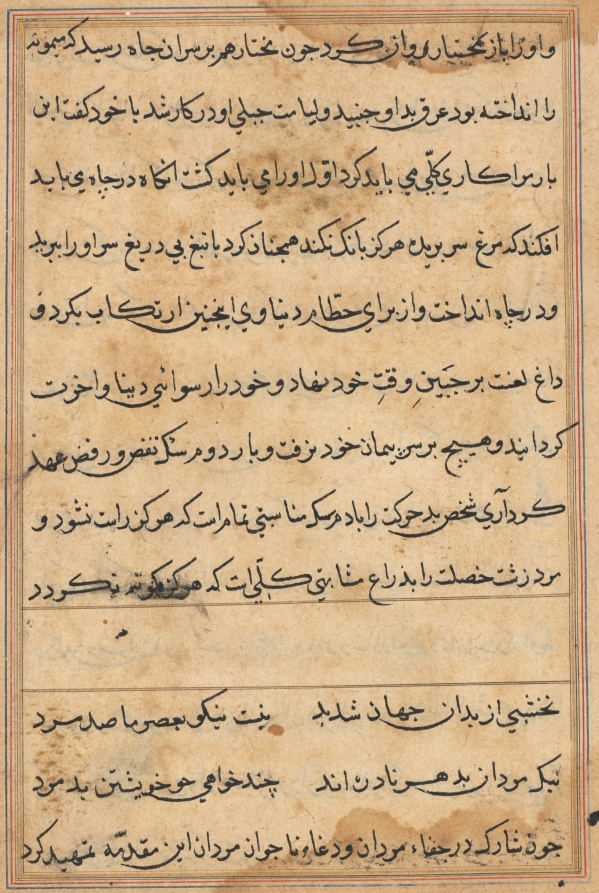 و او را باز بختیار روان کرد جون مختار هم بر سران جاه رسید که میمونه
را انداخته بود عرق بد او جنبید ولیاست جبلی او در کار شد با خود کفت این
بار مرا کاری کلّی می باید کرد اوّل او را می باید کشت انکاه در چاه می باید
افکند که مرغ سر بریده هرکز بانک نکند همچنان کرد با تیغ بی دریغ سر او را ببرید
و در چاه انداخت و از برای حطّام دنیاوی اینچنین ارتکاب بکرد و
داغ لعنت بر جَبَینِ وقتِ خود نهاد و خود را رسوائی دینا و اخرت
کردانید و هیچ بر سر پیمان خود نرفت و بار دوم نقض و رفض عهد
کرد آری شخص بد حرکت را با دم سک مناسبتی تمام است که هرکز راست نشود و
مرد زشت خصلت را بذراع مشابهتی کلّی است که هرکز نکردد
نخشبی از بدان جهان شد بد نیت نیکو بعصر ما صد مرد
نیک مردان بد هر نادره اند چند خواهی جو خویشتن بد مرد
جون شارک در جفاء مردان و دغاء نا جوان مردان این مقدمّه تمهید کرد